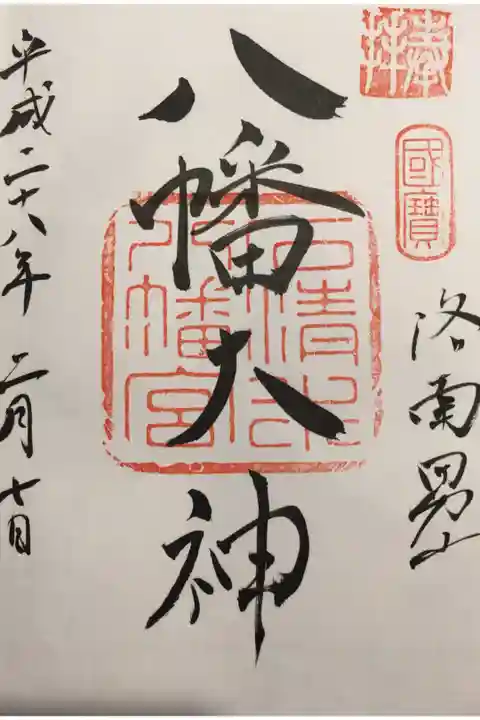 奉拝
國寶
洛南男山
八幡大神
石清水八幡宮
平成二十八年 二月七日